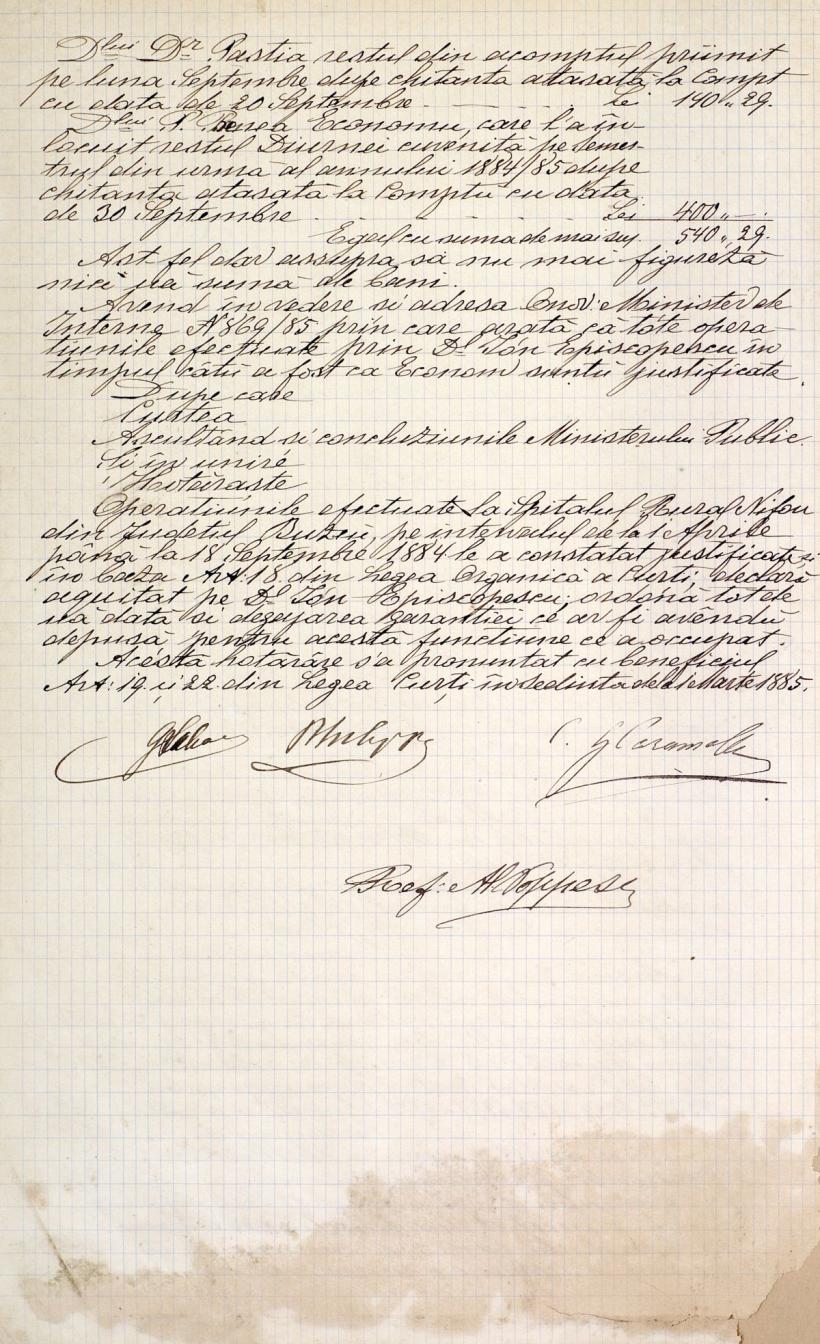 Dlui Dr Pastia restul din acomptul priimit
pe luna Septembre dupe chitanta atasată la Compt
cu data de 20 Septembre. Lei 140 „ 29.
Dlui P. Benea Economu, care l'a în-
locuit restul Diurnei cuvenită pe semes-
trul din urmă al annului 1884/85 dupe
chitanta atasată la Comptu cu data
de 30 Septembre Lei 400 „ —.
Egal cu suma de mai sus. 540 „ 29.
Ast fel dar assupra să nu mai figureză
nici uă sumă de bani.
Avend în vedere si adresa Onor: Minister de
Interne N 869/85 prin care arată că tote opera-
tiunile efectuate prin Dl Ión Episcopescu în
timpul cătu a fost ca Econom suntu justificate.
Dupe care
Curtea
Ascultând si concluziunile Ministerului Public.
Si în unire
Hotăraste
Operatiunile efectuate la Spitalul Rural Nifon
din Judetul Buzeu, pe intervalul de la 1 Aprile
până la 18 Septembre 1884 le a constatat justificate, si
în baza Art: 18. din Legea Organică a Curti, declară
aquitat pe Dl Ión Episcopescu, ordonă totde
uă dată si degajarea garantiei ce ar fi avêndu
depusă pentru acestă functiune ce a occupat.
Acéstă hotărâre s'a pronuntat cu beneficiul
Art: 19. si 22. din Legea Curti în sedinta dela 1 Marte 1885.
Ref: